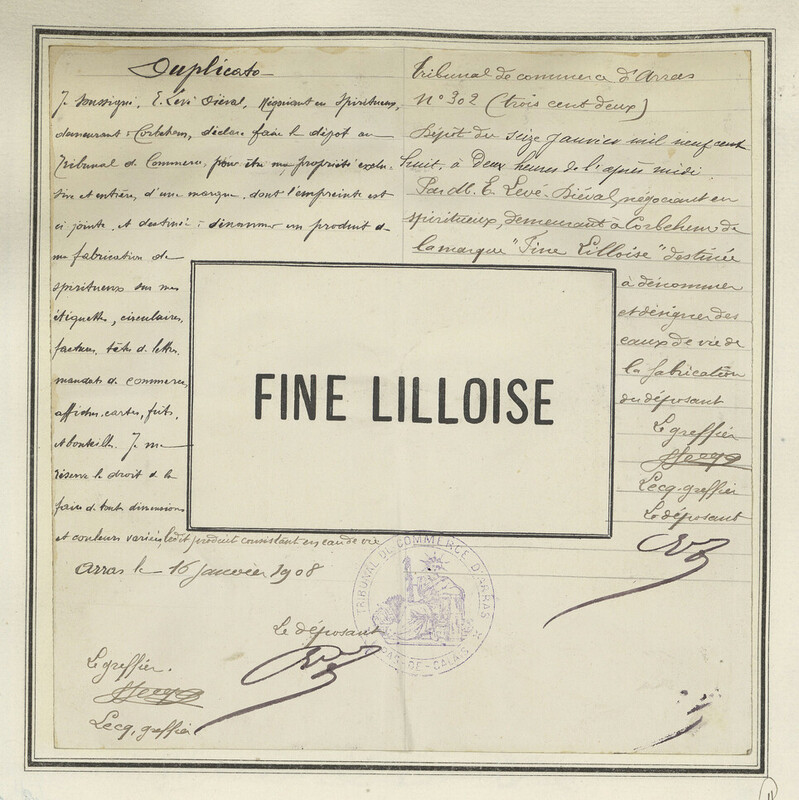 Duplicata
Je soussigné, E. Levé Diéval, Négociant en Spiritueux,
demeurant à Corbehem, déclare faire le dépôt au
Tribunal de Commerce, pour être ma propriété exclu-
sive et entière, d'une marque dont l'empreinte est
ci jointe, et destinée à dénommer un produit de
ma fabrication de
spiritueux sur mes
étiquettes, circulaires,
factures, têtes de lettres,
mandats de commerce,
affiches, cartes, fûts,
et bouteilles. Je me
réserve le droit de le
faire de toutes dimensions
et couleurs variées, ledit produit consistant en eau de vie
Arras le 16 janvier 1908
Le déposant
Le greffier.
Lecq, greffier
Tribunal de commerce d'Arras
N° 302 (trois cent deux)
Dépôt du seize janvier mil neuf cent
huit, à Deux heures de l'après midi
Par M. E. Levé-Diéval, négociant en
spiritueux, demeurant à Corbehem de
la marque "Fine Lilloise" destinée
à dénommer
et désigner des
eaux de vie de
la fabrication
du déposant
Le greffier
Lecq, greffier
Le déposant
FINE LILLOISE
TRIBUNAL DE COMMERCE D'ARRAS
PAS-DE-CALAIS